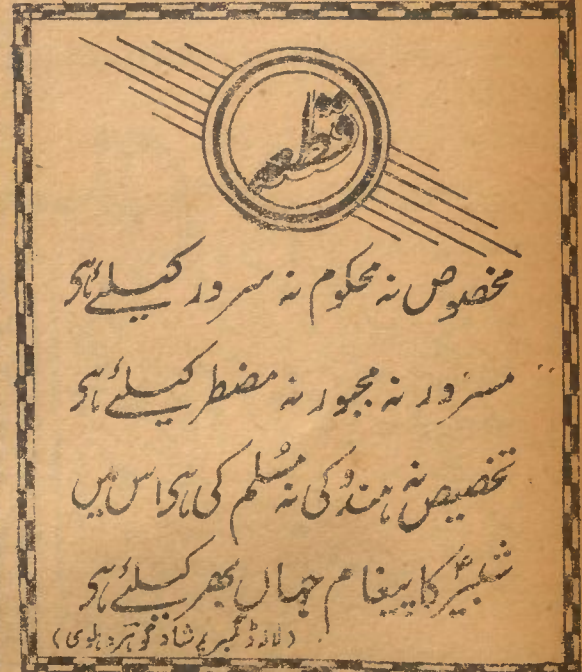 قطعہ
مخصوص نہ محکوم نہ سرور کیلئے ہی
مسرور نہ مجبور نہ مضطر کیلئے ہی
تخصیص نہ ہندو کی نہ مُسلم کی ہی اس میں
شبیرؑ کا پیغام جہاں بھر کیلئے ہی
(لارڈ گمبر پرشاد گوہر دہلوی)